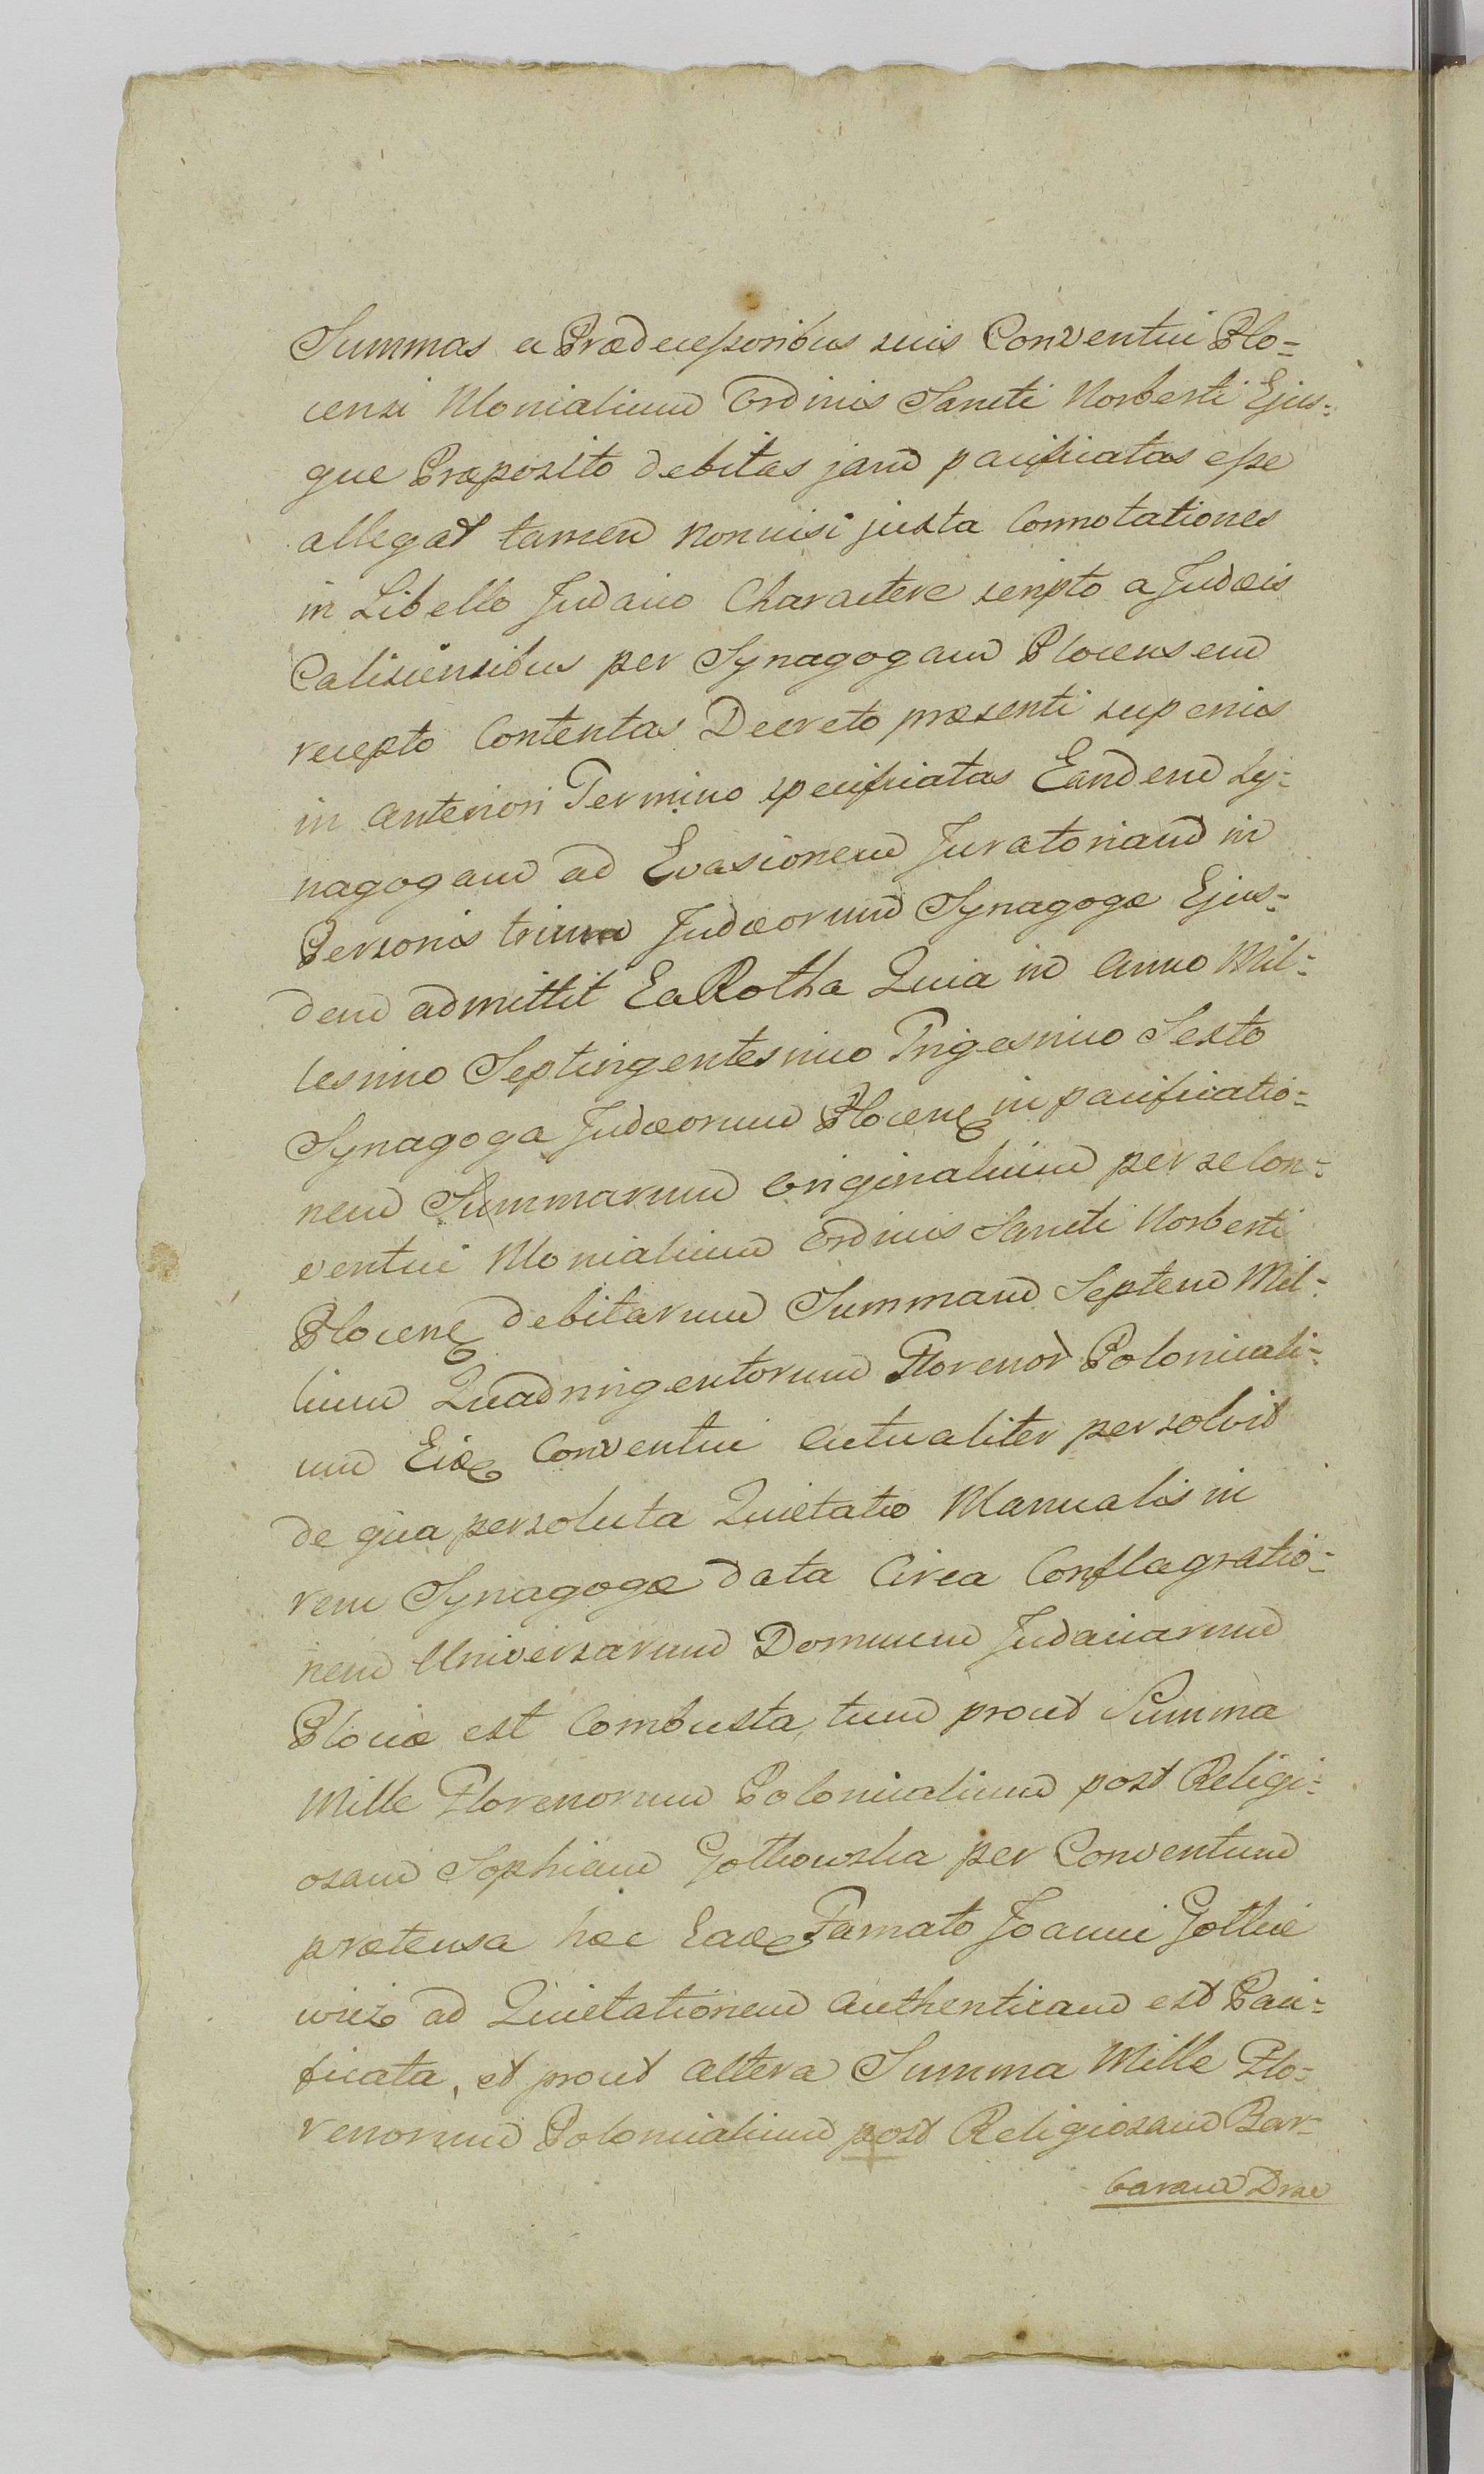 Summas a Prædecessoribus suis Conventui Plo=
censi Monialium Ordinis Sancti Norberti Ejus=
que Præposito debitas jam pacificatas esse
allegat tamen nonnisi juxta Connotationes
in Libello Judaico Charactere scripto a Judæis
Calisiensibus per Synagogam Plocensem
recepto Contentas Decreto præsenti superius
in anteriori Termino specificatas Eandem Sy=
nagogam ad Evasionem Juratoriam in
Personis trium Judæorum Synagogæ Ejus=
dem admittit Ea Rotha Quia in Anno Mil=
lesimo Septingentesimo Trigesimo Sexto
Synagoga Judæorum Plocen in pacificatio=
nem Summarum Originalium per se Con=
ventui Monialium Ordinis Sancti Norberti
Plocen debitarum Summam Septem Mil=
lium Quadringentorum Florenor Polonicali=
um Eid Conventui Actualiter persolvit
de qua persoluta Quietatio Manualis in
rem Synagogæ data Circa Conflagratio=
nem Universarum Domuum Judaicarum
Plociæ est Combusta, tum prout Summa
Mille Florenorum Polonicalium post Religi=
osam Sophiam Gotkowska per Conventum
prætensa hæc Ead Famato Joanni Gotkie
wicz ad Quietationem Authenticam est Paci=
ficata, et prout altera Summa Mille Flo=
renorum Polonicalium post Religiosam Bar=
baram